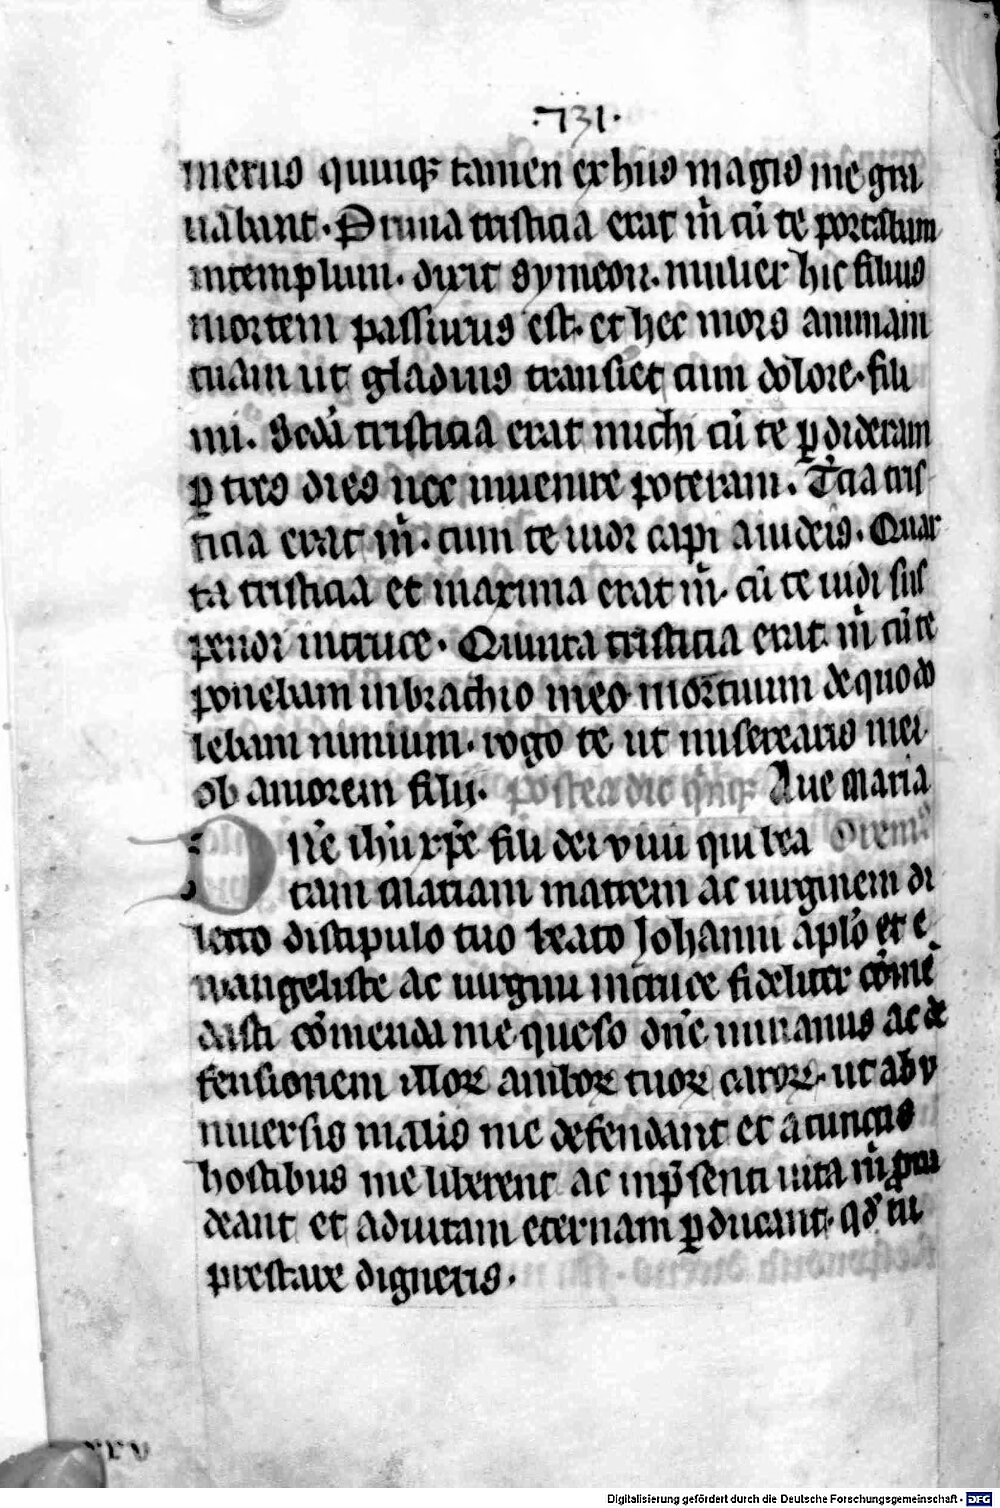 ·731·
merus quinqꝫ tamen ex hiis magis me gra
uabant. Prima tristicia erat m̄ cū te portabam
in templum. dixit symeon. mulier hic filius
mortem passurus est. et hec mors animam
tuam ut gladius transiet cum dolore. fili
mi. Scda tristicia erat michi cū te ꝑdideram
ꝑ tres dies nec inuenire poteram. Tcia tris
ticia erat m̄. cum te uidi capi a iudeis. Quar
ta tristicia et maxima erat m̄. cū te uidi sus
pendi in cruce. Quinta tristicia erat m̄ cū te
ponebam in brachio meo mortuum de quo do
lebam nimium. rogo te ut miserearis mei
ob amorem filij. postea dic qnqꝫ Aue maria
Dn̄e ihū xp̄e fili dei viui qui bea Orem
tam mariam matrem ac uirginem di
lecto discipulo tuo beato Johanni aplō et e
wangeliste ac uirgini in cruce fideliter cōme
dasti cōmenda me queso dn̄e in manus ac de
fensionem illoꝝ amboꝝ tuoꝝ caroꝝ. ut ab v
niuersis malis me defendant et a cunctis
hostibus me liberent ac in p̄senti uita m̄
deant et ad uitam eternam ꝑducant. qd tu
prestare digneris.